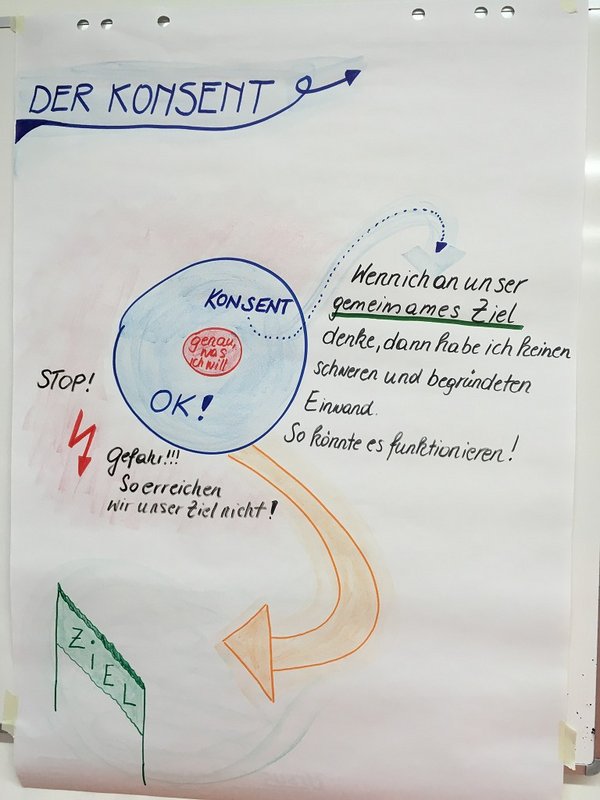 DER KONSENT
KONSENT
genau,
was
ich will
OK!
Wenn ich an unser
gemeinsames Ziel
denke, dann habe ich keinen
schweren und begründeten
Einwand.
So könnte es funktionieren!
STOP!
Gefahr!!!
So erreichen
wir unser Ziel nicht!
ZiEL